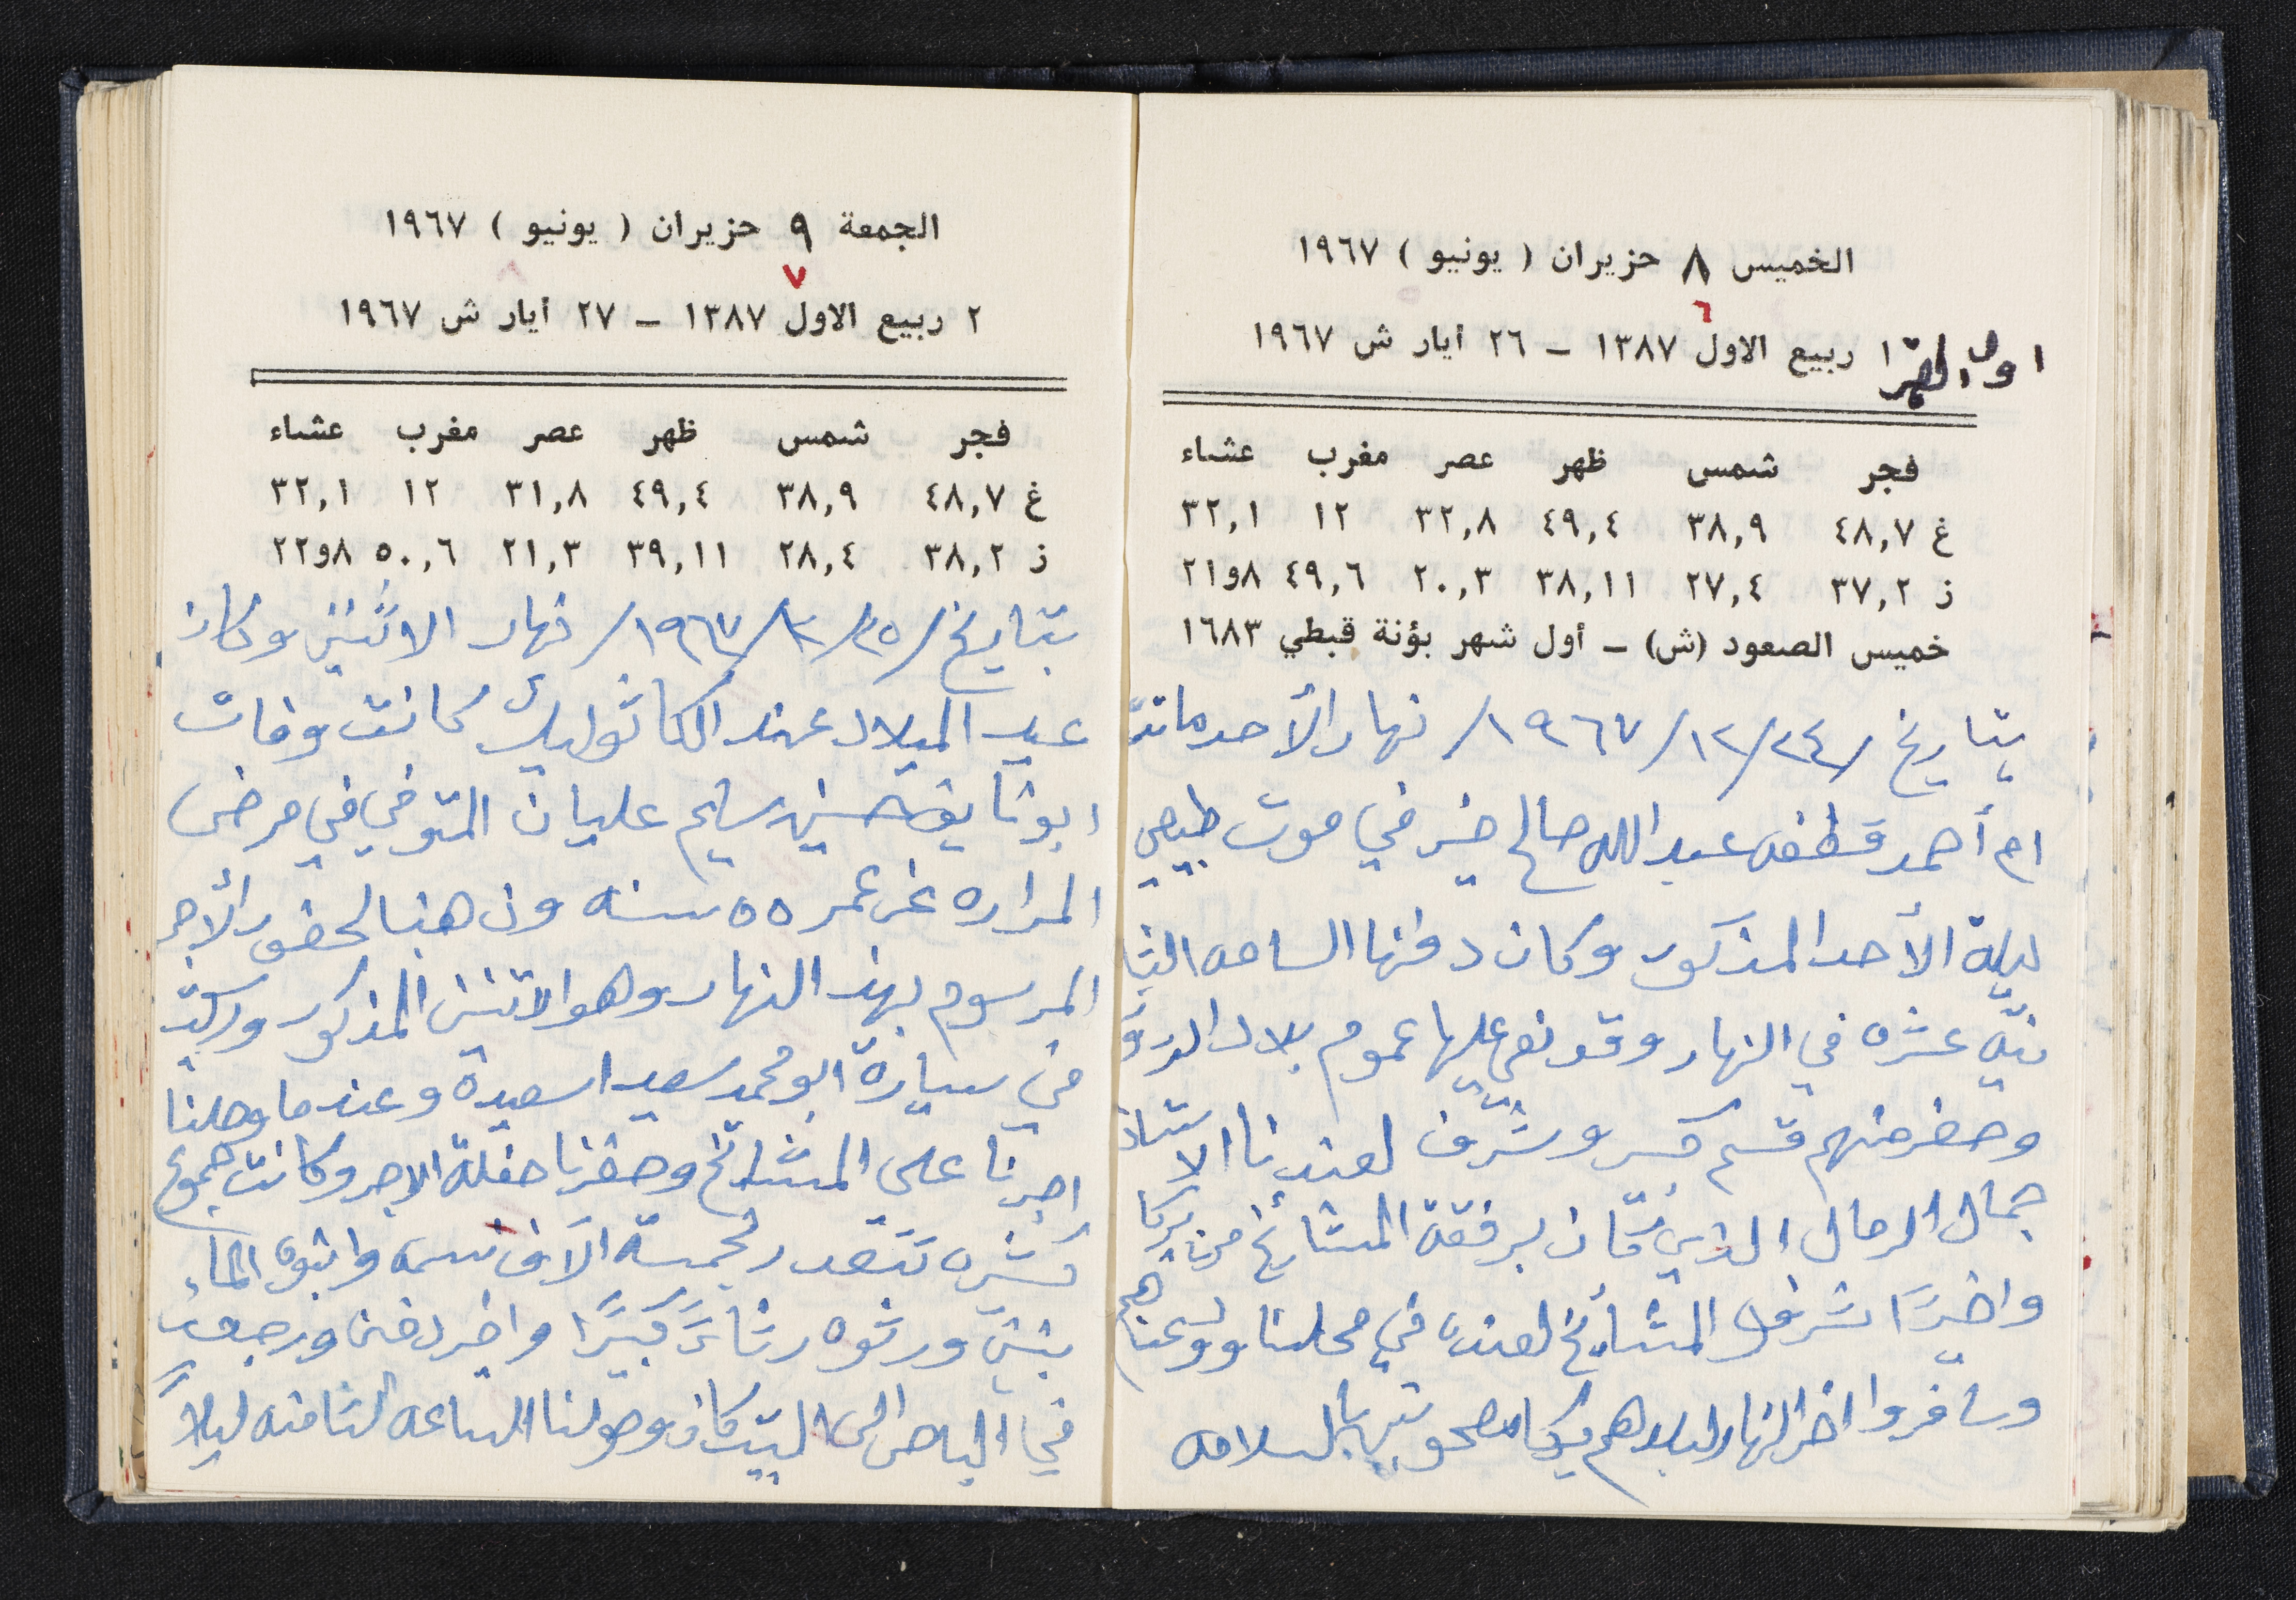 الخميس ٨ حزيران ( يونيو ) ١٩٦٧
٦
اول ١ ربيع الاول ١٣٨٧ – ٢٦ أيار ش ١٩٦٧
فجر شمس ظهر عصر مغرب عشاء
غ ٤٨,٧ ٣٨,٩ ٤٩,٤ ٣٢,٨ ١٢ ٣٢,١
ز ٣٧,٢ ٢٧,٤ ٣٨,١١ ٢٠,٣ ٤٩,٦ ٨و٢١
خميس الصعود (ش) – أول شهر بؤنة قبطي ١٦٨٣
بتاريخ /٢٤/١٢/١٩٦٧/ نهار الأحد ماتت
ام أحمد عبدالله صالح خير في موت طبيعي
ليلة الأحد المذكور وكان دفنها الساعه الثا
نيّه عشره في النهار وقد نعي عليها عموم بلاد الدروز
وحضر منهم قسم كبير وشرف لعندنا الاستاذ
جمال الذي كان برفقة المشائخ من يركا
واخيرًا شرفوا المشائخ لعندنا في محلنا وودعناهم
وسافروا اخر النهار لبلدهم يركا مصحوبين بالسلامه
الجمعة ٩ حزيران ( يونيو ) ١٩٦٧
٧
٢ ربيع الاول ١٣٨٧ – ٢٧ أيار ش ١٩٦٧
فجر شمس ظهر عصر مغرب عشاء
غ ٤٨,٧ ٣٨,٩ ٤٩,٤ ٣١,٨ ١٢ ٣٢,١
ز ٣٨,٢ ٢٨,٤ ٣٩,١١ ٢١,٣ ٥٠,٦ ٨و٢٢
بتاريخ /٢٥/١٢/١٩٦٧/ نهار الاثنين وكان
عيد الميلاد عند الكاثوليك كانت وفات
حسين سليم عليان المتوفي في مرض
المراره عن عمر ٥٥ سنه وذهبنا لحضور الأجر
المرسوم بهذ النهار وهو الاثنين المذكور وركبت
في سيارة ابو محمد سعيد اسعيده وعندما وصلنا
اجرنا على المشائخ وحضرنا حفلة الاجر وكانت جموع
كثيره تتعد لخمسة الآف نسمه وابنوه العلماء
ورثوه رثاءً كبيرًا واخير دفن ورجعت
في الباص الى البيت كان وصولنا الساعه الثامنه ليلاً